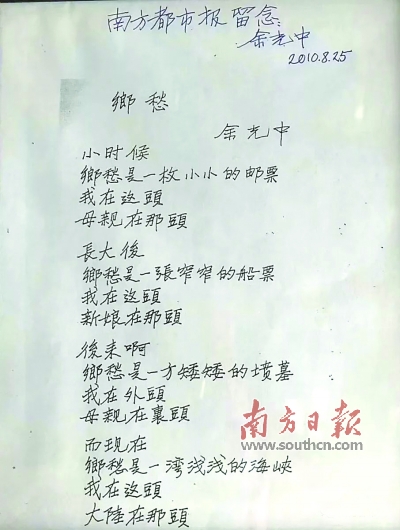 南方都市报留念：
余光中
2010.8.25
鄉愁
余光中
小时候
鄉愁是一枚小小的邮票
我在这頭
母親在那頭
長大後
鄉愁是一張窄窄的船票
我在这頭
新娘在那頭
後来啊
鄉愁是一方矮矮的墳墓
我在外頭
母親在裏頭
而現在
鄉愁是一湾浅浅的海峽
我在这頭
大陸在那頭
南方日報
www.southcn.com